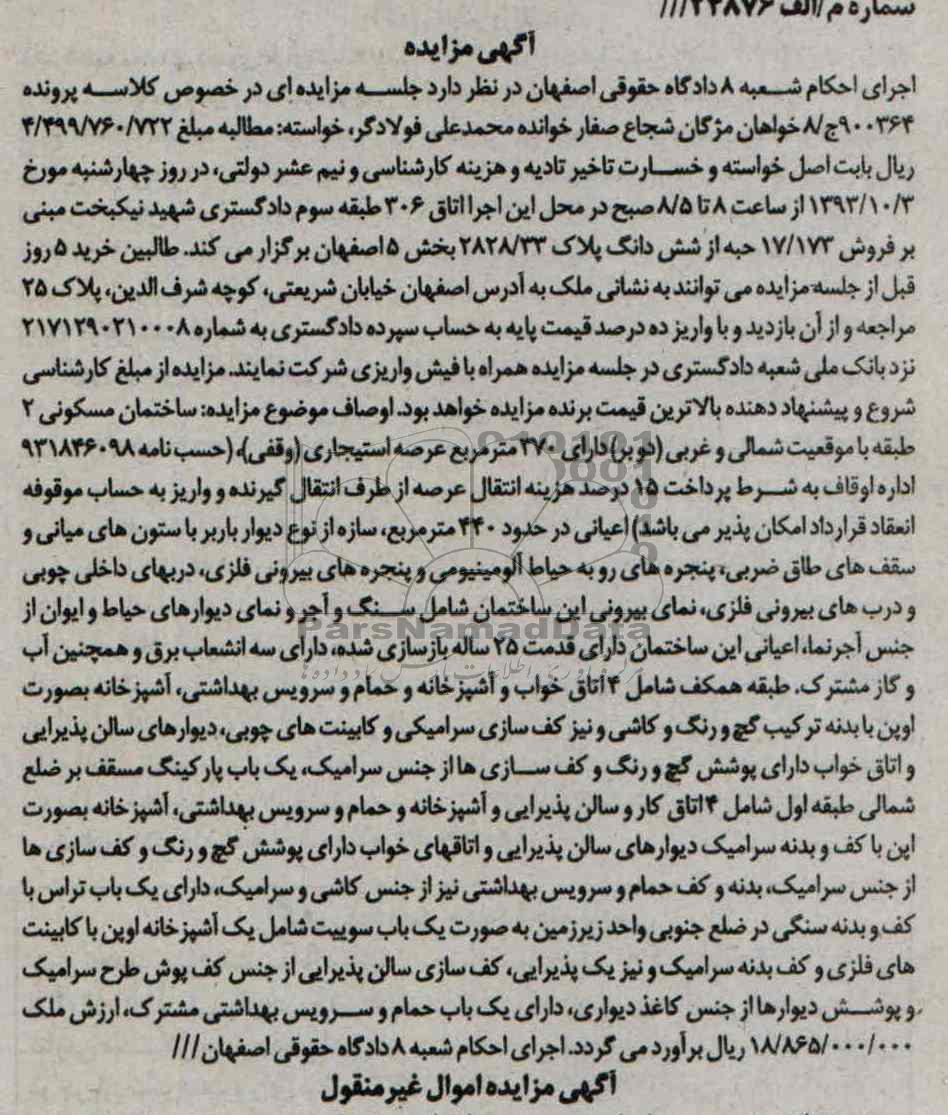 شماره م/الف ۲۲۸۷۶///
آگهی مزایده
اجرای احکام شعبه ۸ دادگاه حقوقی اصفهان در نظر دارد جلسه مزایده ای در خصوص کلاسه پرونده
۹۰۰۳۶۴ج/۸ خواهان مژگان شجاع صفار خوانده محمدعلی فولادگر، خواسته: مطالبه مبلغ ۴/۴۹۹/۷۶۰/۷۲۲
ریال بابت اصل خواسته و خسارت تاخیر تادیه و هزینه کارشناسی و نیم عشر دولتی، در روز چهارشنبه مورخ
۱۳۹۳/۱۰/۳ از ساعت ۸ تا ۸/۵ صبح در محل این اجرا اتاق ۳۰۶ طبقه سوم دادگستری شهید نیکبخت مبنی
بر فروش ۱۷/۱۷۳ حبه از شش دانگ پلاک ۲۸۲۸/۳۳ بخش ۵ اصفهان برگزار می کند. طالبین خرید ۵ روز
قبل از جلسه مزایده می توانند به نشانی ملک به آدرس اصفهان خیابان شریعتی، کوچه شرف الدین، پلاک ۲۵
مراجعه و از آن بازدید و با واریز ده درصد قیمت پایه به حساب سپرده دادگستری به شماره ۲۱۷۱۲۹۰۲۱۰۰۰۸
نزد بانک ملی شعبه دادگستری در جلسه مزایده همراه با فیش واریزی شرکت نمایند. مزایده از مبلغ کارشناسی
شروع و پیشنهاد دهنده بالاترین قیمت برنده مزایده خواهد بود. اوصاف موضوع مزایده: ساختمان مسکونی ۲
طبقه با موقعیت شمالی و غربی (دو بر) دارای ۳۷۰ مترمربع عرصه استیجاری (وقفی)، (حسب نامه ۹۳۱۸۴۶۰۹۸
اداره اوقاف به شرط پرداخت ۱۵ درصد هزینه انتقال عرصه از طرف انتقال گیرنده و واریز به حساب موقوفه
انعقاد قرارداد امکان پذیر می باشد) اعیانی در حدود ۴۴۰ مترمربع، سازه از نوع دیوار باربر با ستون های میانی و
سقف های طاق ضربی، پنجره های رو به حیاط آلومینیومی و پنجره های بیرونی فلزی، دربهای داخلی چوبی
و درب های بیرونی فلزی، نمای بیرونی این ساختمان شامل سنگ و آجر و نمای دیوارهای حیاط و ایوان از
ParsNamadData
جنس آجرنما، اعیانی این ساختمان دارای قدمت ۲۵ ساله بازسازی شده، دارای سه انشعاب برق و همچنین آب
و گاز مشترک. طبقه همکف شامل ۴ اتاق خواب و آشپزخانه و حمام و سرویس بهداشتی، آشپزخانه بصورت
اوپن با بدنه ترکیب گچ و رنگ و کاشی و نیز کف سازی سرامیکی و کابینت های چوبی، دیوارهای سالن پذیرایی
و اتاق خواب دارای پوشش گچ و رنگ و کف سازی ها از جنس سرامیک، یک باب پارکینگ مسقف بر ضلع
شمالی طبقه اول شامل ۴ اتاق کار و سالن پذیرایی و آشپزخانه و حمام و سرویس بهداشتی، آشپزخانه بصورت
اپن با کف و بدنه سرامیک دیوارهای سالن پذیرایی و اتاقهای خواب دارای پوشش گچ و رنگ و کف سازی ها
از جنس سرامیک، بدنه و کف حمام و سرویس بهداشتی نیز از جنس کاشی و سرامیک، دارای یک باب تراس با
کف و بدنه سنگی در ضلع جنوبی واحد زیرزمین به صورت یک باب سوییت شامل یک آشپزخانه اوپن با کابینت
های فلزی و کف بدنه سرامیک و نیز یک پذیرایی، کف سازی سالن پذیرایی از جنس کف پوش طرح سرامیک
و پوشش دیوارها از جنس کاغذ دیواری، دارای یک باب حمام و سرویس بهداشتی مشترک، ارزش ملک
۱۸/۸۶۵/۰۰۰/۰۰۰ ریال برآورد می گردد. اجرای احکام شعبه ۸ دادگاه حقوقی اصفهان ///
آگهی مزایده اموال غیرمنقول